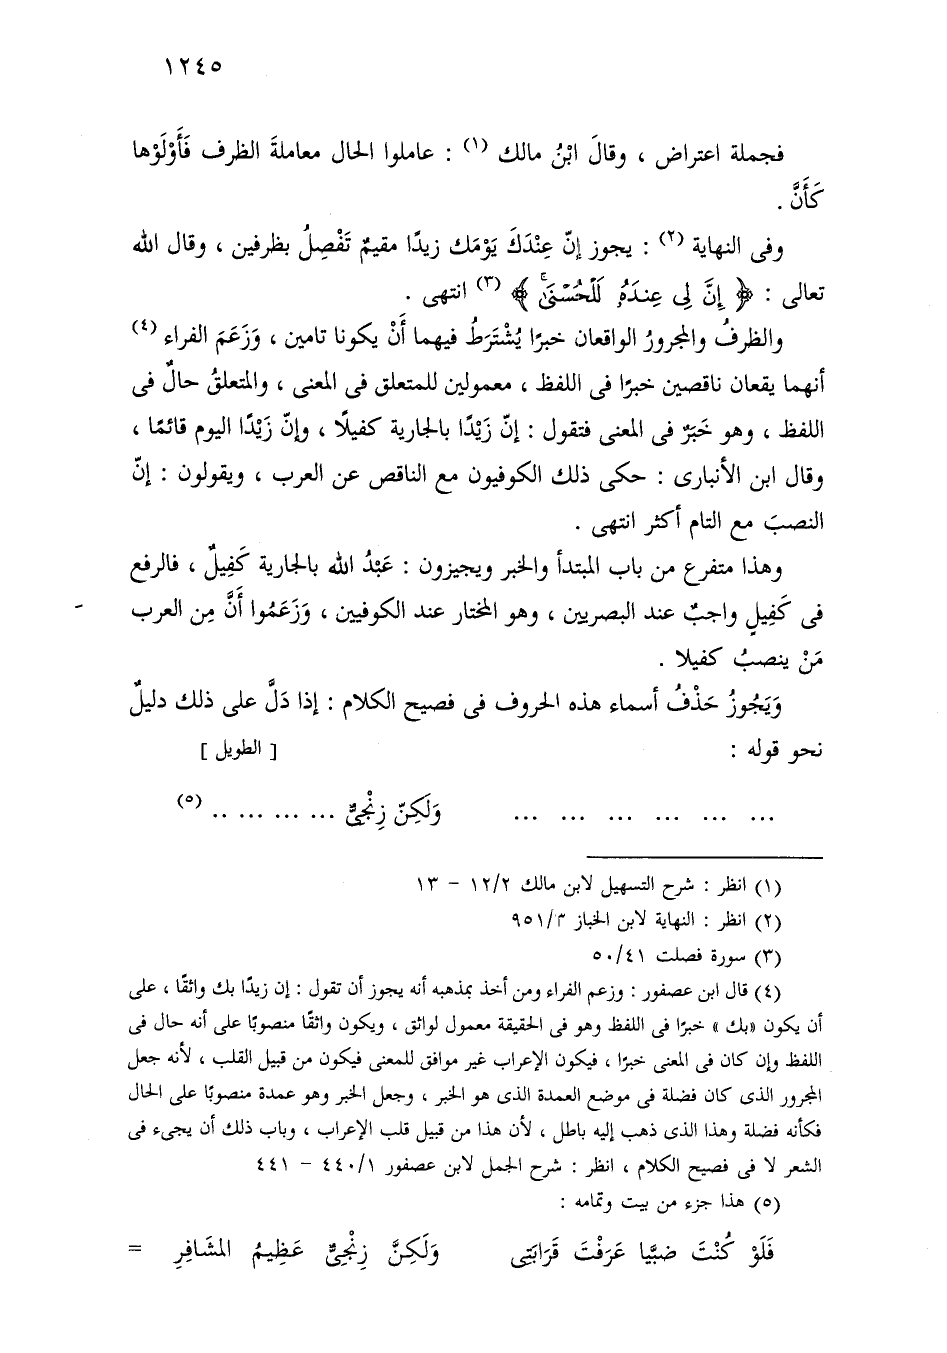 ١٢٤٥
فجملة اعتراض ، وقالَ ابْنُ مالك (١) : عاملوا الحال معاملةَ الظرف فَأَوْلَوْها
كَأَنَّ .
وفى النهاية (٢) : يجوز إنّ عِنْدَكَ يَوْمَك زيدًا مقيمٌ تَفْصِلُ بظرفين ، وقال الله
تعالى : ﴿ إِنَّ لِى عِندَهُۥ لَلْحُسْنَىٰ ﴾ (٣) انتهى .
والظرفُ والمجرورُ الواقعان خبرًا يُشْتَرَطُ فيهما أَنْ يكونا تامين ، وَزَعَمَ الفراء (٤)
أنهما يقعان ناقصين خبرًا فى اللفظ ، معمولين للمتعلق فى المعنى ، والمتعلقُ حالٌ فى
اللفظ ، وهو خَبَرٌ فى المعنى فتقول : إنّ زَيْدًا بالجارية كفيلًا ، وإنّ زَيْدًا اليوم قائمًا ،
وقال ابن الأنبارى : حكى ذلك الكوفيون مع الناقص عن العرب ، ويقولون : إنّ
النصبَ مع التام أكثر انتهى .
وهذا متفرع من باب المبتدأ والخبر ويجيزون : عَبْدُ الله بالجارية كَفِيلٌ ، فالرفع
فى كَفِيلٍ واجبٌ عند البصريين ، وهو المختار عند الكوفيين ، وَزَعَمُوا أَنَّ مِن العرب
مَنْ ينصبُ كفيلا .
وَيَجُوزُ حَذْفُ أسماء هذه الحروف فى فصيح الكلام : إذا دَلَّ على ذلك دليلٌ
نحو قوله : [ الطويل ]
... ... ... ... ... ... وَلَكِنّ زِنْجِىٌّ ... ... ... .. (٥)
(١) انظر : شرح التسهيل لابن مالك ١٢/٢ – ١٣
(٢) انظر : النهاية لابن الخباز ٩٥١/٣
(٣) سورة فصلت ٥٠/٤١
(٤) قال ابن عصفور : وزعم الفراء ومن أخذ بمذهبه أنه يجوز أن تقول : إن زيدًا بك واثقًا ، على
أن يكون «بك» خبرًا فى اللفظ وهو فى الحقيقة معمول لواثق ، ويكون واثقًا منصوبًا على أنه حال فى
اللفظ وإن كان فى المعنى خبرًا ، فيكون الإعراب غير موافق للمعنى فيكون من قبيل القلب ، لأنه جعل
المجرور الذى كان فضلة فى موضع العمدة الذى هو الخبر ، وجعل الخبر وهو عمدة منصوبًا على الحال
فكأنه فضلة وهذا الذى ذهب إليه باطل ، لأن هذا من قبيل قلب الإعراب ، وباب ذلك أن يجىء فى
الشعر لا فى فصيح الكلام ، انظر : شرح الجمل لابن عصفور ٤٤٠/١ – ٤٤١
(٥) هذا جزء من بيت وتمامه :
فَلَوْ كُنْتَ ضبَّيا عَرَفْتَ قَرَابَتِى وَلَكِنَّ زِنْجِىٌّ عَظِيمُ المشَافِرِ =